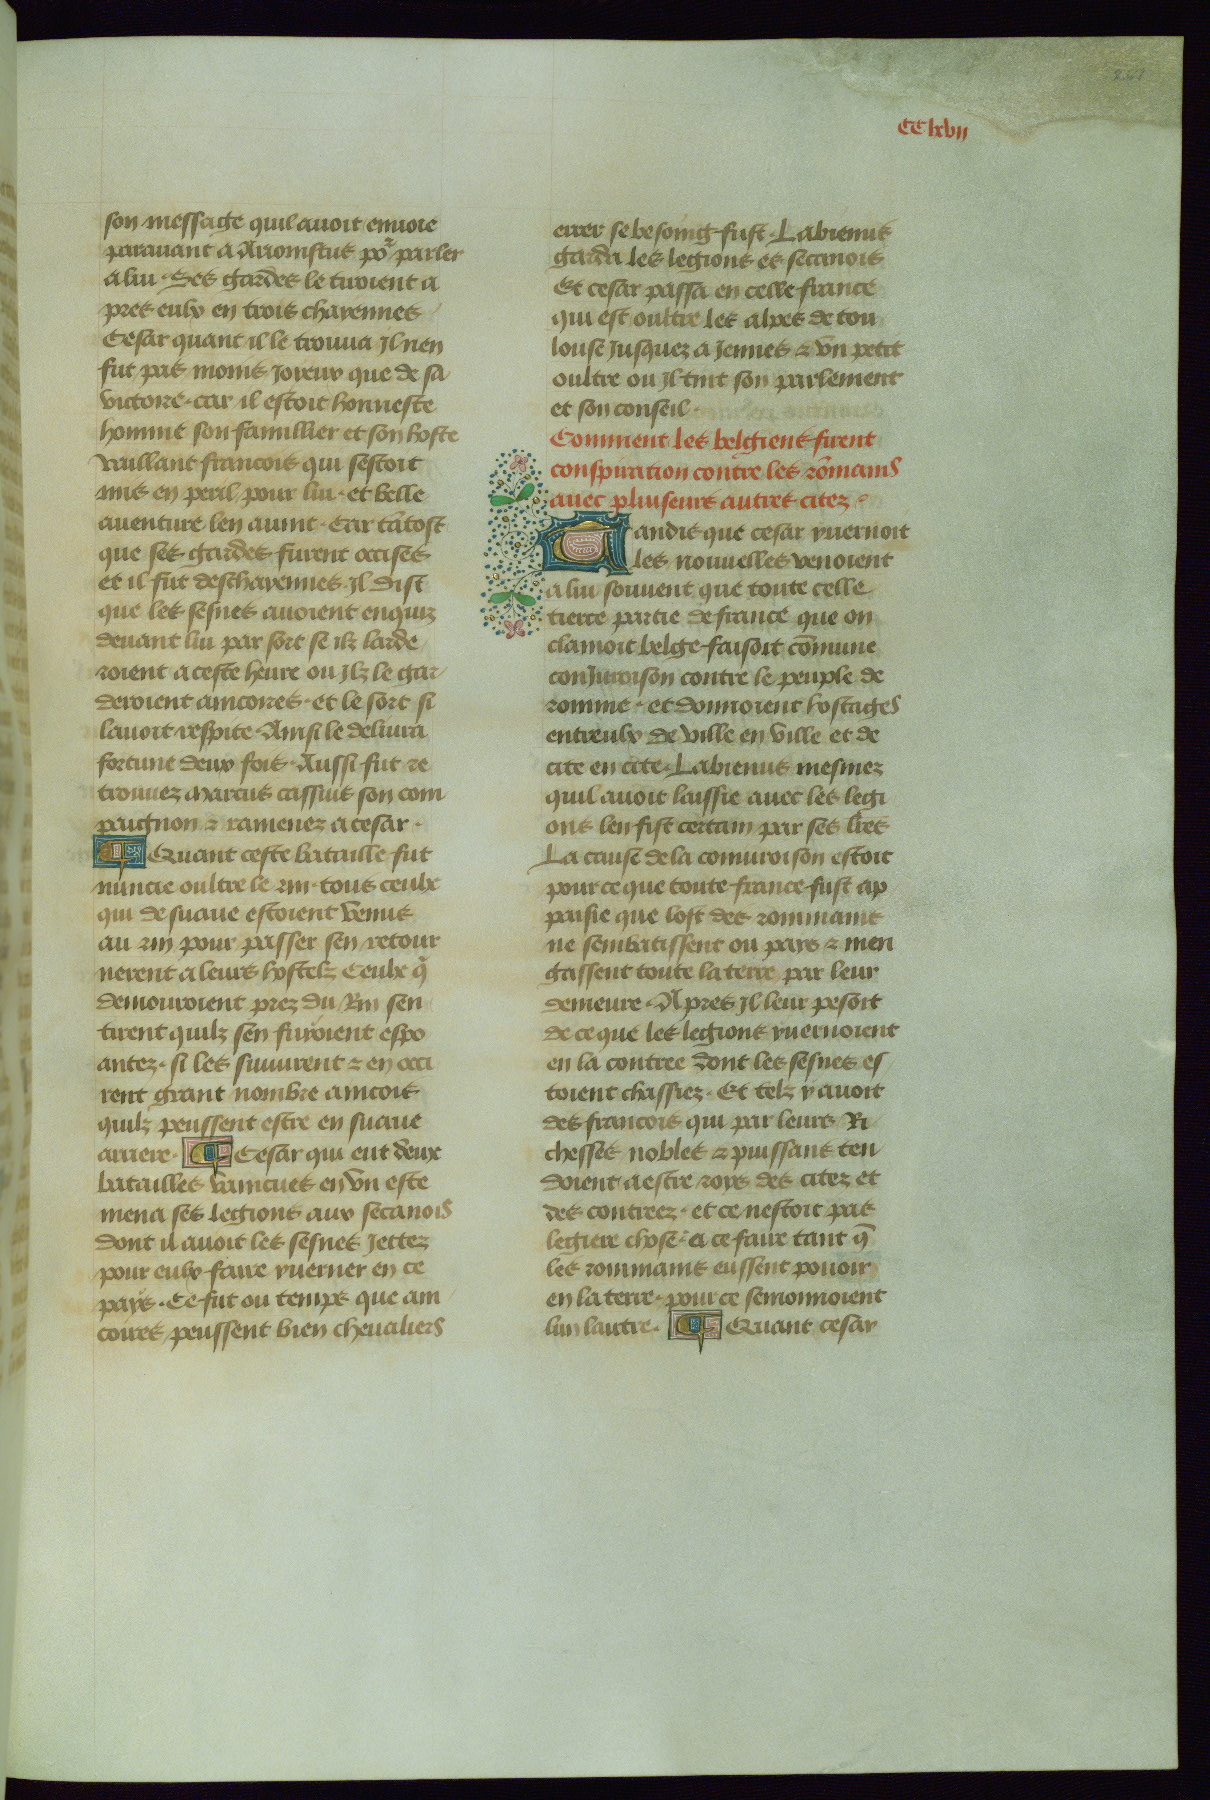 267
CClxvii
son message quil auoit enuoie
parauant a Ariouistus por parler
a lui. Ses gardes le tiroient a
pres eulx en trois chayennes
Cesar quant il le trouua Il nen
fut pas moins Ioyeux que de sa
victoire. car il estoit honneste
homme son famillier et son hoste
vaillant francois qui sestoit
mis en peril pour lui. et belle
auenture len auint. Car tãtost
que ses gardes furent occises
et il fut deschayennes. Il dist
que les sesnes auoient enquiz
deuant lui par sort se ilz larde
roient a ceste heure ou Ilz le gar
deroient aincoires. et le sort si
lauoit respite. Ainsi le deliura
fortune deux fois. Aussi fut re
trouuez Marcus cassius son com
paignon & ramenez a cesar.
Quant ceste bataille fut
nuncie oultre le rin. tous ceulx
qui de suaue estoient venus
au rin pour passer sen retour
nerent a leurs hostelz Ceulx q̃
demouroient prez du Rin sen
tirent quilz sen fuyoient espo
antez. si les suiuirent & en occi
rent grant nombre aincois
quilz peussent estre en suaue
arriere. Cesar qui eut deux
batailles vaincues en vn este
mena ses legions aux secanois
dont il auoit les sesnes Iettez
pour eulx faire yuerner en ce
pays. Ce fut ou temps que ain
coires peussent bien cheualiers
errer se besoing fust. Labienus
garda les legions es secanois
Et cesar passa en celle france
qui est oultre les alpes de tou
louse Iusquez a Iennes & vn petit
oultre ou Il tint son parlement
et son conseil.
Comment les belgiens firent
conspiration contre les rõmains
auec pluiseurs autres citez.
Tandis que cesar yuernoit
les nouuelles venoient
a lui souuent que toute celle
tierce partie de france que on
clamoit belge faisoit cõmune
conIuroison contre le peuple de
romme. et donnoient hostages
entreulx de ville en ville et de
cite en cite. Labienus mesmez
quil auoit laissie auec les legi
ons len fist certain par ses lr̃es
La cause de la coniuroison estoit
pour ce que toute france fust ap
paisie que lost des rommains
ne sembatissent ou pays & men
gassent toute la terre par leur
demeure. Apres Il leur pesoit
de ce que les legions yuernoient
en la contree dont les sesnes es
toient chassiez. Et telz y auoit
des francois qui par leurs Ri
chesses nobles & puissans ten
doient a estre roys des citez et
des contreez. et ce nestoit pas
legiere chose a ce faire tant q̃
les rommains eussent pouoir
en la terre. pour ce semonnoient
lun lautre. Quant cesar